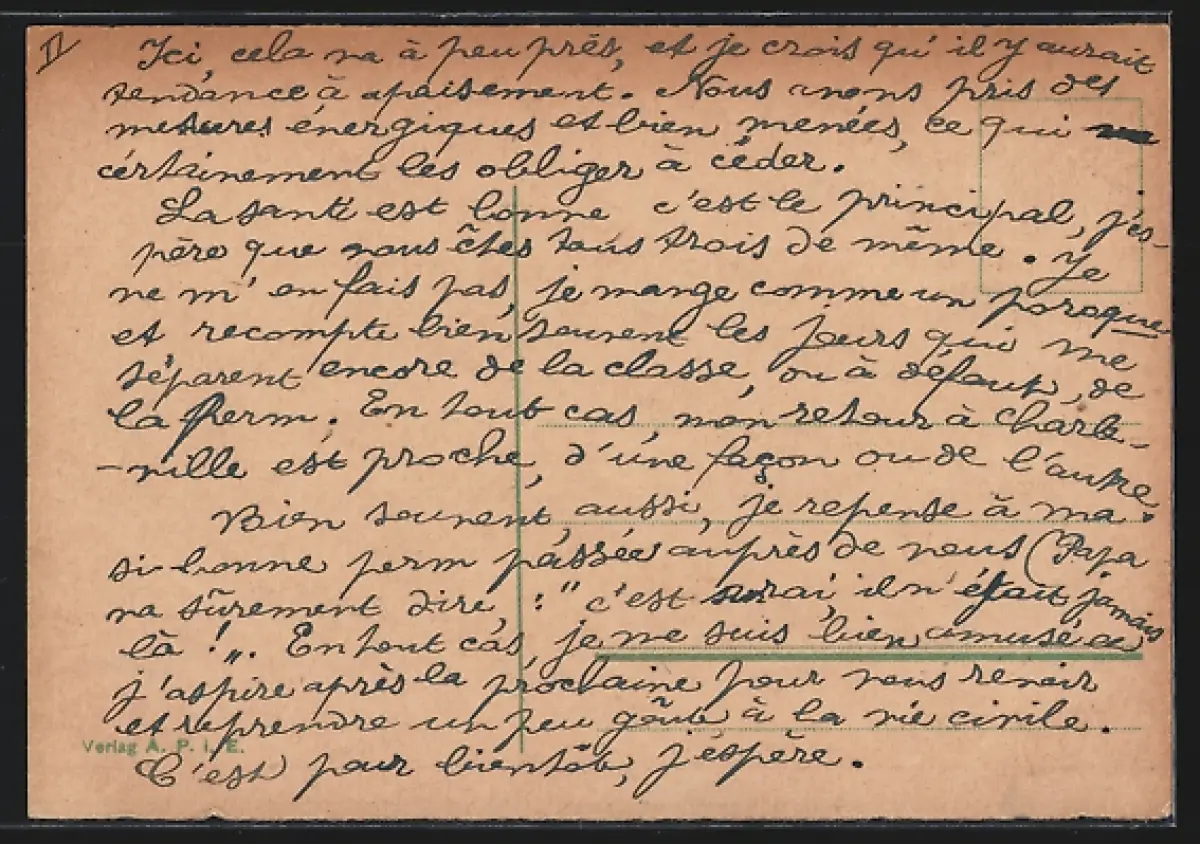 II
Ici, cela va à peu près, et je crois qu'il y aurait
tendance à apaisement. Nous avons pris des
mesures énergiques et bien menées, ce qui va
certainement les obliger à céder.
La santé est bonne c'est le principal, j'es-
père que vous êtes tous trois de même. Je
ne m'en fais pas, je mange comme un
et recompte bien souvent les jours qui me
séparent encore de la classe, ou à défaut, de
la perm. En tout cas, mon retour à Charle-
-ville est proche, d'une façon ou de l'autre.
Bien souvent, aussi, je repense à ma
si bonne perm passée auprès de vous (Papa
va sûrement dire, : "c'est vrai, il n'était jamais
là !". En tout cas, je me suis bien amusé
j'aspire après la prochaine pour vous revoir
et reprendre un peu goût à la vie civile.
Verlag A. P. i. E.
C'est pour bientôt, j'espère.